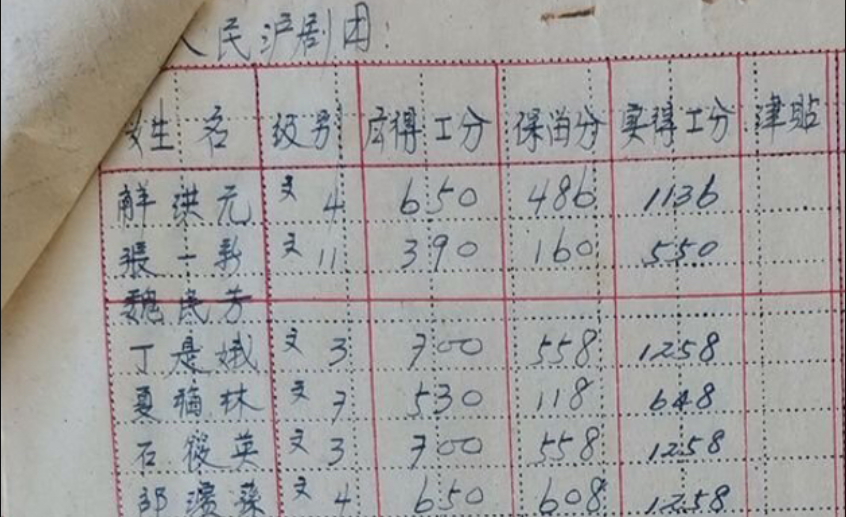 人民沪剧团:
姓名 级别 应得工分 保留分 实得工分 津贴
解洪元 文4 650 486 1136
張一新 文11 390 160 550
魏民芳
丁是娥 文3 700 558 1258
夏福林 文7 530 118 648
石筱英 文3 700 558 1258
邵滨孫 文4 650 608 1258